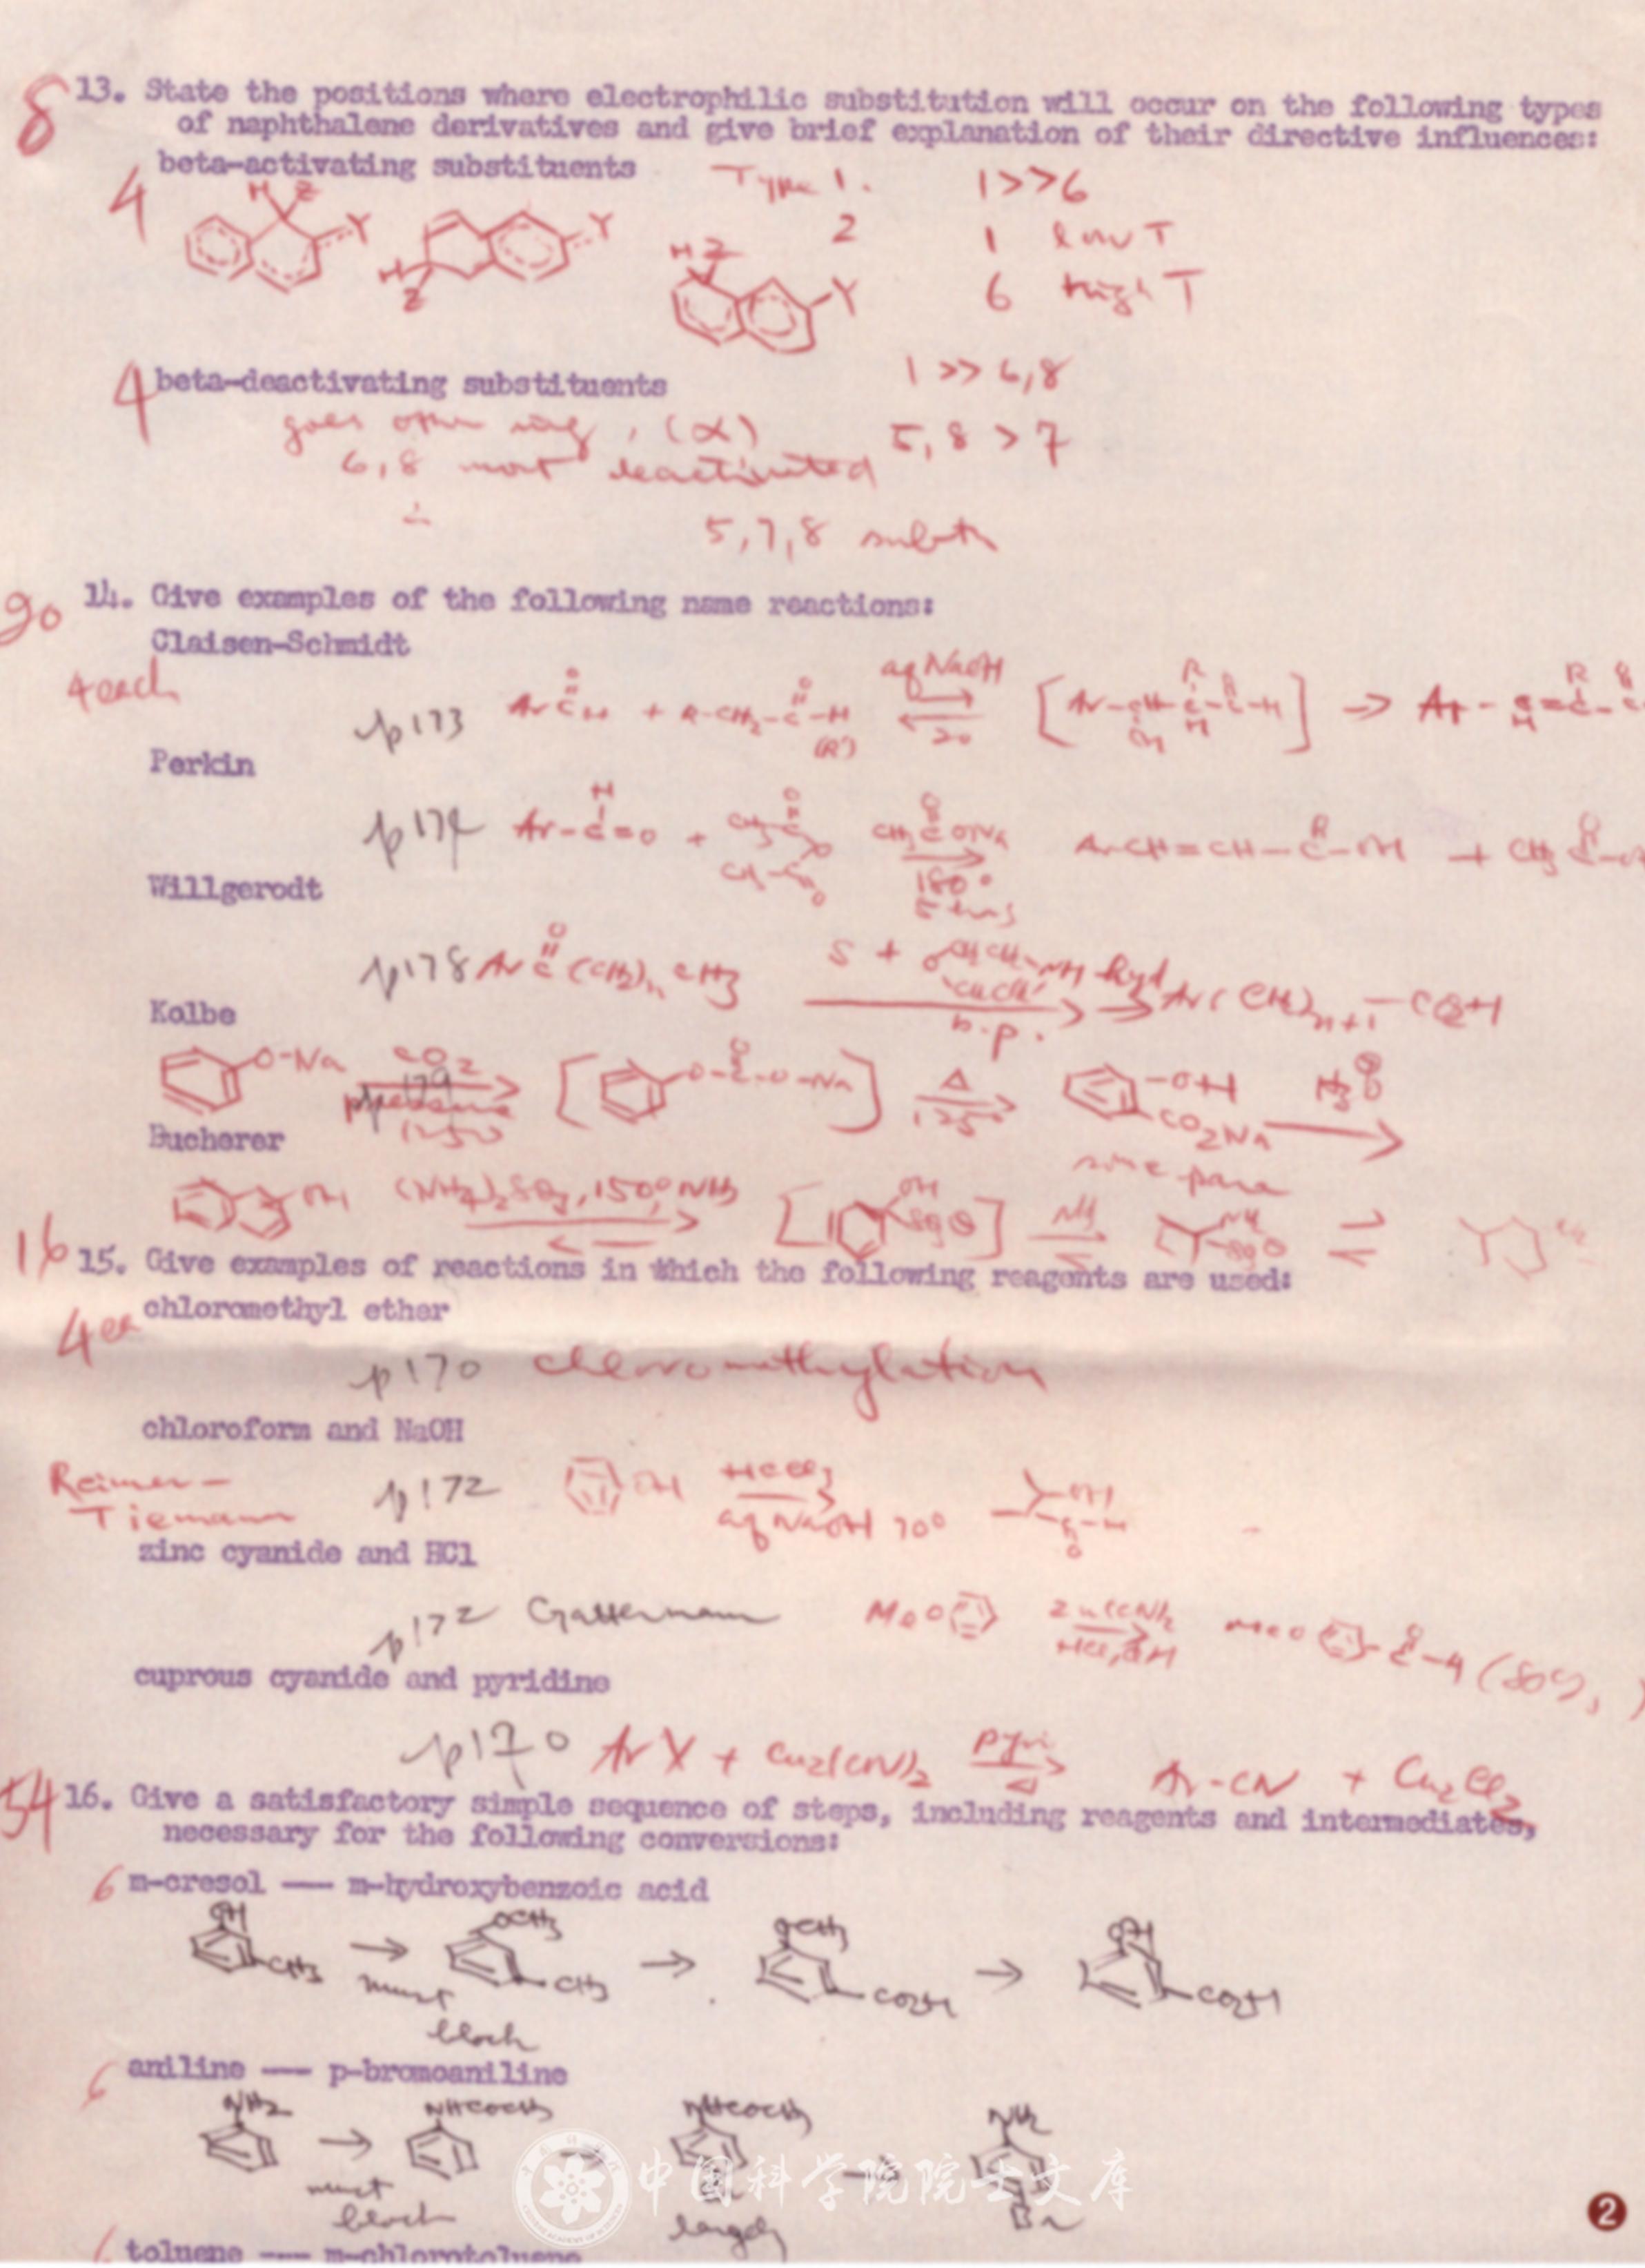 8 13. State the positions where electrophilic substitution will occur on the following types
of naphthalene derivatives and give brief explanation of their directive influences:
4 beta-activating substituents
Type 1. 1>>6
2 1 low T
6 high T
H Z Y
H Z Y
H Z Y
1 >> 6,8
4 beta-deactivating substituents
goes other ring, (α) 5, 8 > 7
6,8 most deactivated
∴ 5,7,8 
20 14. Give examples of the following name reactions:
Claisen-Schmidt
4 each
p173 aq NaOH
Perkin
p174
180°
5 hrs
Willgerodt
p178 S + hyd
b.p.
Kolbe
O-Na CO2 p179 pressure O-Na Δ 125° -OH CO2Na H3O⊕
Bucherer
some para
OH (NH4)2SO3, 150°, NH3
16 15. Give examples of reactions in which the following reagents are used:
4 ea chloromethyl ether
p170 chloromethylation
chloroform and NaOH
Reimer-
Tiemann
p172 OH HCCl3 aq NaOH 70° OH
zinc cyanide and HCl
p172 Gattermann MeO Zn(CN)2 MeO
cuprous cyanide and pyridine
p170 ArX + Cu2(CN)2 pyri Δ Ar-CN + Cu2Cl2
54 16. Give a satisfactory simple sequence of steps, including reagents and intermediates,
necessary for the following conversions:
6 m-cresol --- m-hydroxybenzoic acid
OH CH3 → OCH3 CH3 → OCH3 CO2H → OH CO2H
must
block
6 aniline --- p-bromoaniline
NH2 → NHCOCH3 → NHCOCH3 → NH2
must
block
largely
Br
中国科学院院士文库
2
toluene --- m-chlorotoluene